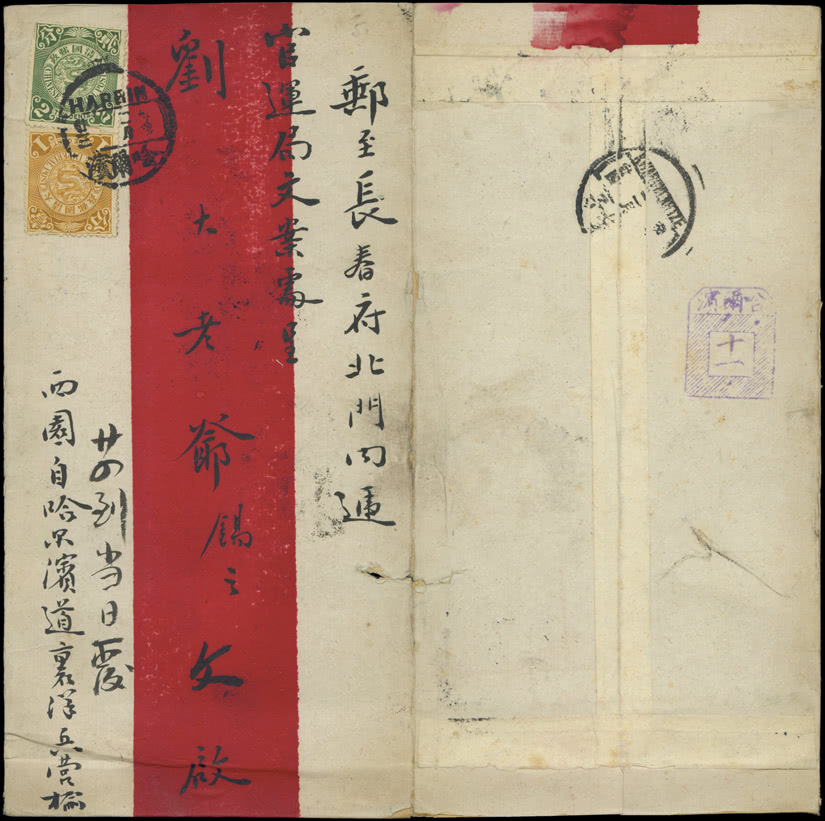 郵至長春府北門內遞
官運局文案處呈
劉大老爺錫之文啟
廿四到當日覆
西園自哈尔濱道裏洋兵營械
HARBIN
哈爾濱
2
1
分
KWANCHENGTZE
哈爾濱
十一